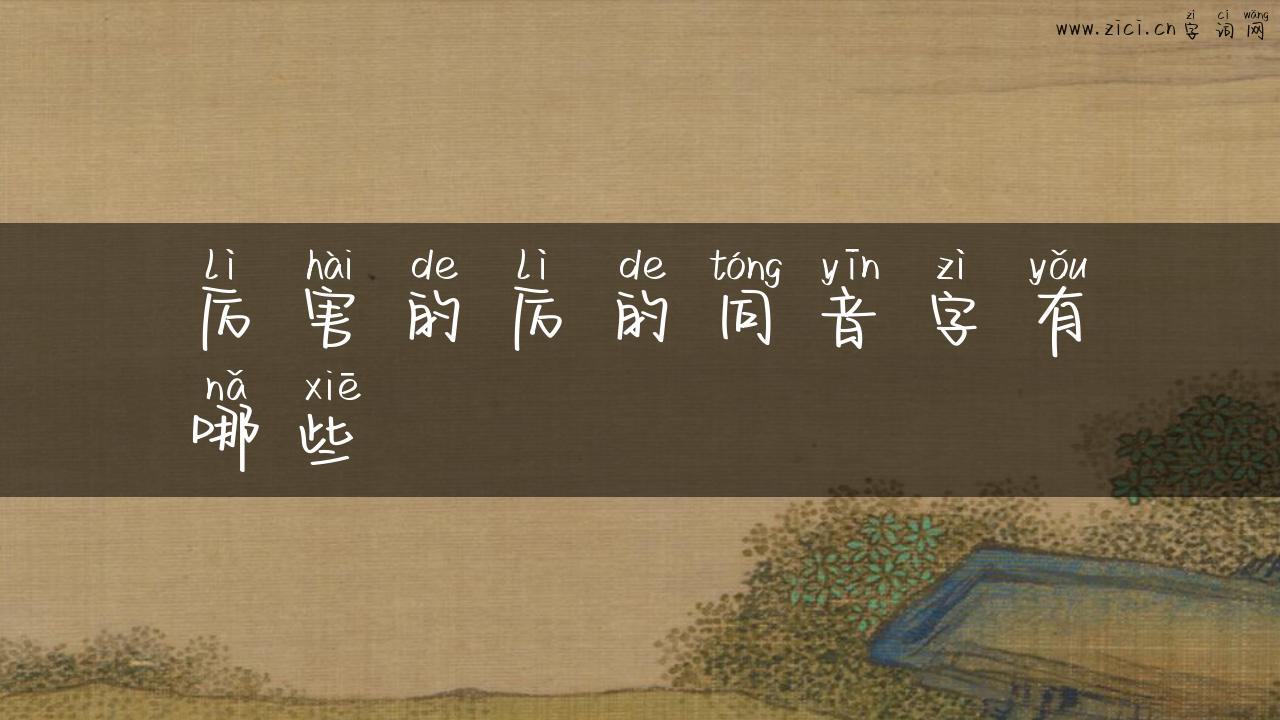 www.zici.cn zì cí wǎng
字词网
lì hài de lì de tóng yīn zì yǒu
厉害的厉的同音字有
nǎ xiē
哪些